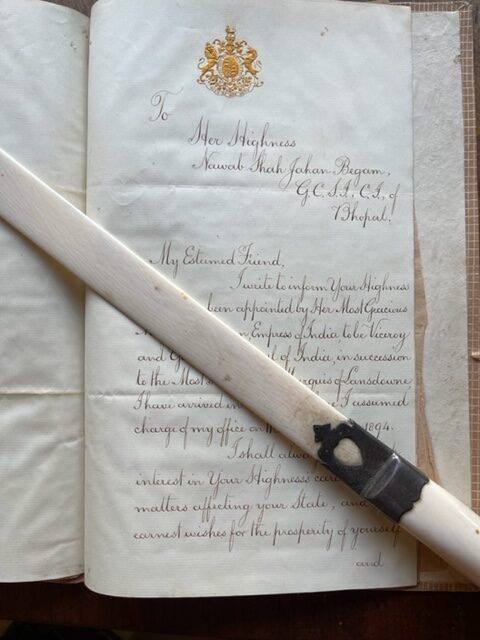 To
Her Highness
Nawab Shah Jahan Begam,
G.C.S.I., C.I., of
Bhopal.
My Esteemed Friend,
I write to inform Your Highness
been appointed by Her Most Gracious
Empress of India, to be Viceroy
and of India, in succession
to the Most of Lansdowne
I have arrived in I assumed
charge of my office on 1894.
I shall
interest in Your Highness's
matters affecting your State, and
earnest wishes for the prosperity of yourself
and